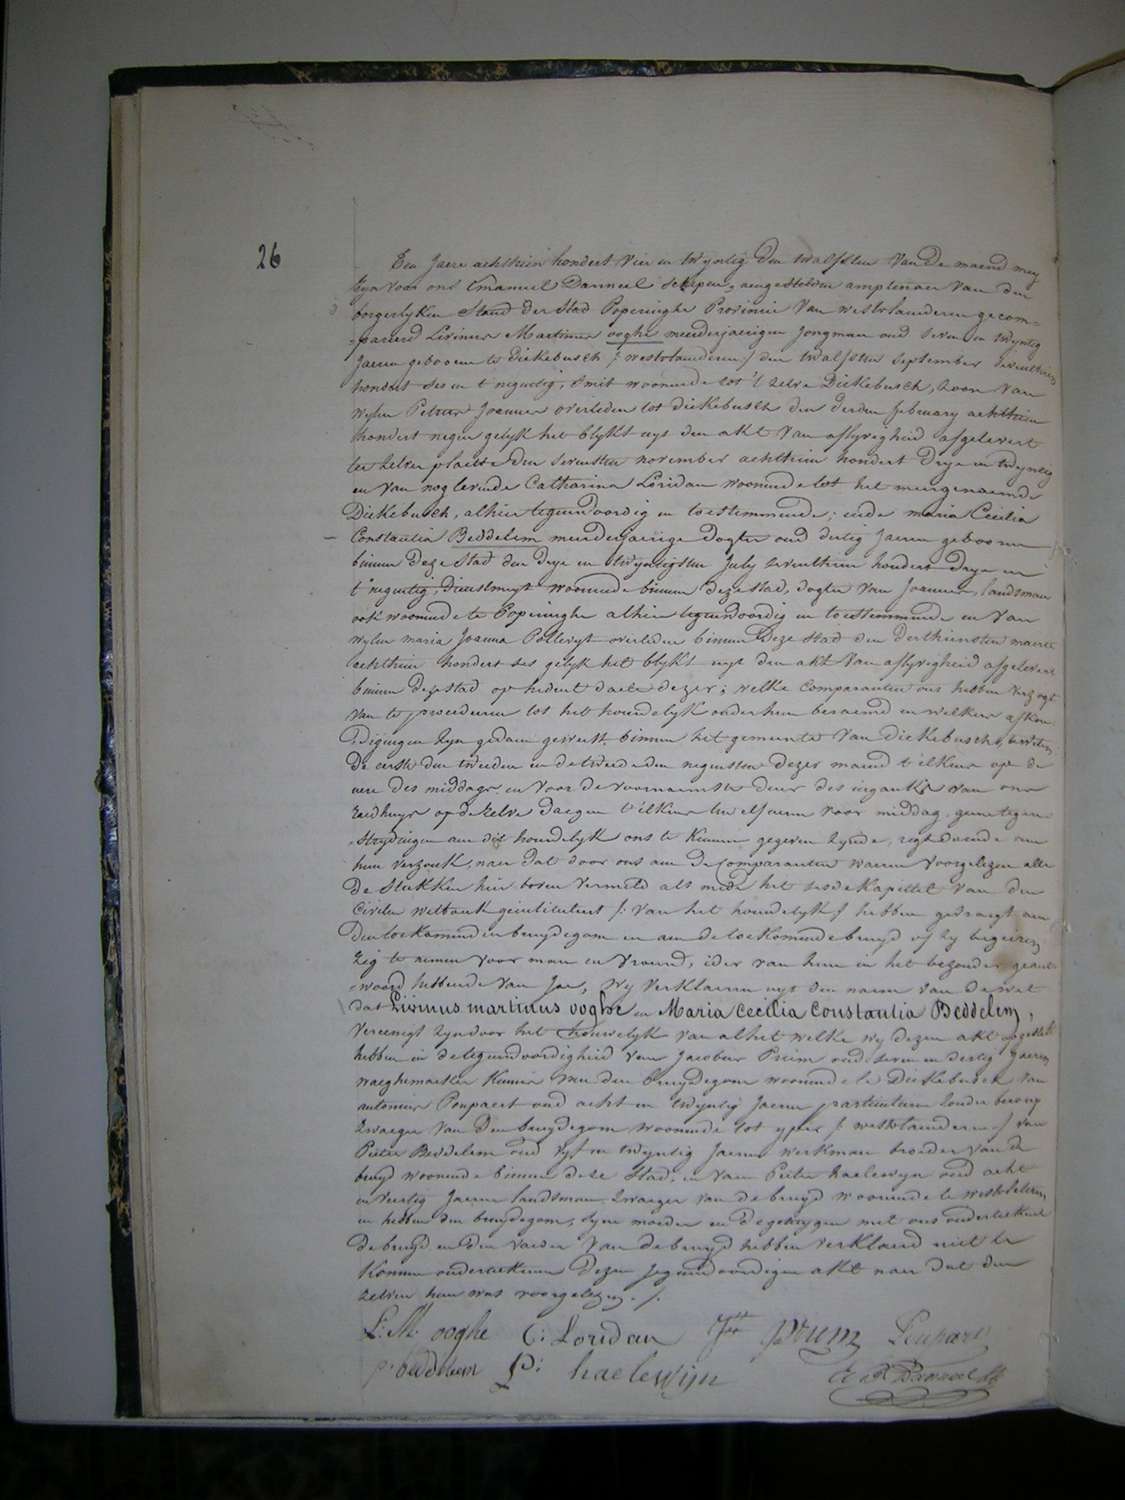 26
Een Jaere achthien hondert vier en twyntig den twalfsten van de maend mey
syn voor ons Emanuel Danneel schepen, aengestelden amptenaer van den
borgerlyken Stand der Stad Poperinghe Provincie van westvlaenderen gecom=
=pareerd Livinus Martinus ooghe meerderjaerigen jongman oud seven en twyntig
jaeren gebooren te Dickebusch /: westvlaenderen :/ den twalfsten september seventhien
hondert ses en t'negentig, woonende tot 't zelve Dickebusch, zoon van
wylen Petrus Joannes overleden tot dickebusch den derden february achthien
hondert negen gelyk het blykt uyt den akt van aflyvigheid afgelevert
ter zelver plaetse den sevensten november achthien hondert drye en twyntig
en van nog levende Catharina Loridan woonende tot het meergenoemde
Dickebusch, alhier tegenwoordig en toestemmende; ende maria Cecilia
Constantia Beddelem meerderjaerige dogter oud dertig jaeren gebooren
binnen deze Stad den drye en twyntigsten July seventhien hondert drye en
t'negentig, dienstmeyt woonende binnen deze stad, dogter van Joannes, landsman
ook woonende te Poperinghe alhier tegenwoordig en toestemmende en van
wylen maria Joanna Pollevyt overleden binnen deze stad den derthiensten maerte
achthien hondert ses gelyk het blykt uyt den akt van aflyvigheid afgelevert
binnen deze stad op heden daete dezer; welke comparanten ons hebben verzogt
van te procederen tot het houwelyk onder hun beraemd en welkers afkon=
digingen zyn gedaen geweest binnen het gemeente van Dickebusch,
de eerste den tweeden en de tweede den negensten dezer maend t'elkens op de
uere des middags en voor de voornaemste deur des ingank van ons
raedhuys op de zelve daegen t'elkens twelf uren voor middag. geene tegen=
=strydingen aen dit houwelyk ons te kennen gegeven zynde, regt doende aen
hun verzoek, naer dat door ons aen de Comparanten waeren voorgelezen alle
de Stukken hier boven vermeld als mede het sesde kapittel van den
Civilen wetboek geintituleert /: van het houwelyk :/ hebben gevraegt aen
den toekomenden bruydegom en aen de toekomende bruyd of zy begeiren
zig te nemen voor man en vrouw, ider van hun in het bezonder geant=
=woord hebbende van Jae, wy verklaeren uyt den naem van de wet
dat Livinus martinus ooghe en Maria Cecilia Constantia Beddelem,
vereenigt zyn door het houwelyk van al het welke wy dezen akt opgestelt
hebben in de tegenwoordigheid van Jacobus Priem oud seven en dertig jaeren
waeghemaeker kennis van den bruydegom woonende te Dickebusch van
antonius Poupaert oud acht en twyntig jaeren particulier zonder beroep
zwaeger van den bruydegom woonende tot yper /: westvlaenderen :/ van
Pieter Beddelem oud vyf en twyntig jaeren werkman broeder van de
bruyd woonende binnen deze Stad, en van Pieter haelewyn oud acht
en veertig jaeren landsman zwaeger van de bruyd woonende te westvleteren
en hebben den bruydegom, syne moeder en de getuygen met ons onderteekent
de bruyd en den vader van de bruyd hebben verklaerd niet te
konnen onderteekenen dezen jegenwoordigen akt naer dat den
zelven hun was voorgelezen. /.
L: M: ooghe C: Loridan Jb priem Poupart
P: beddelem P: haelewijn E Danneel